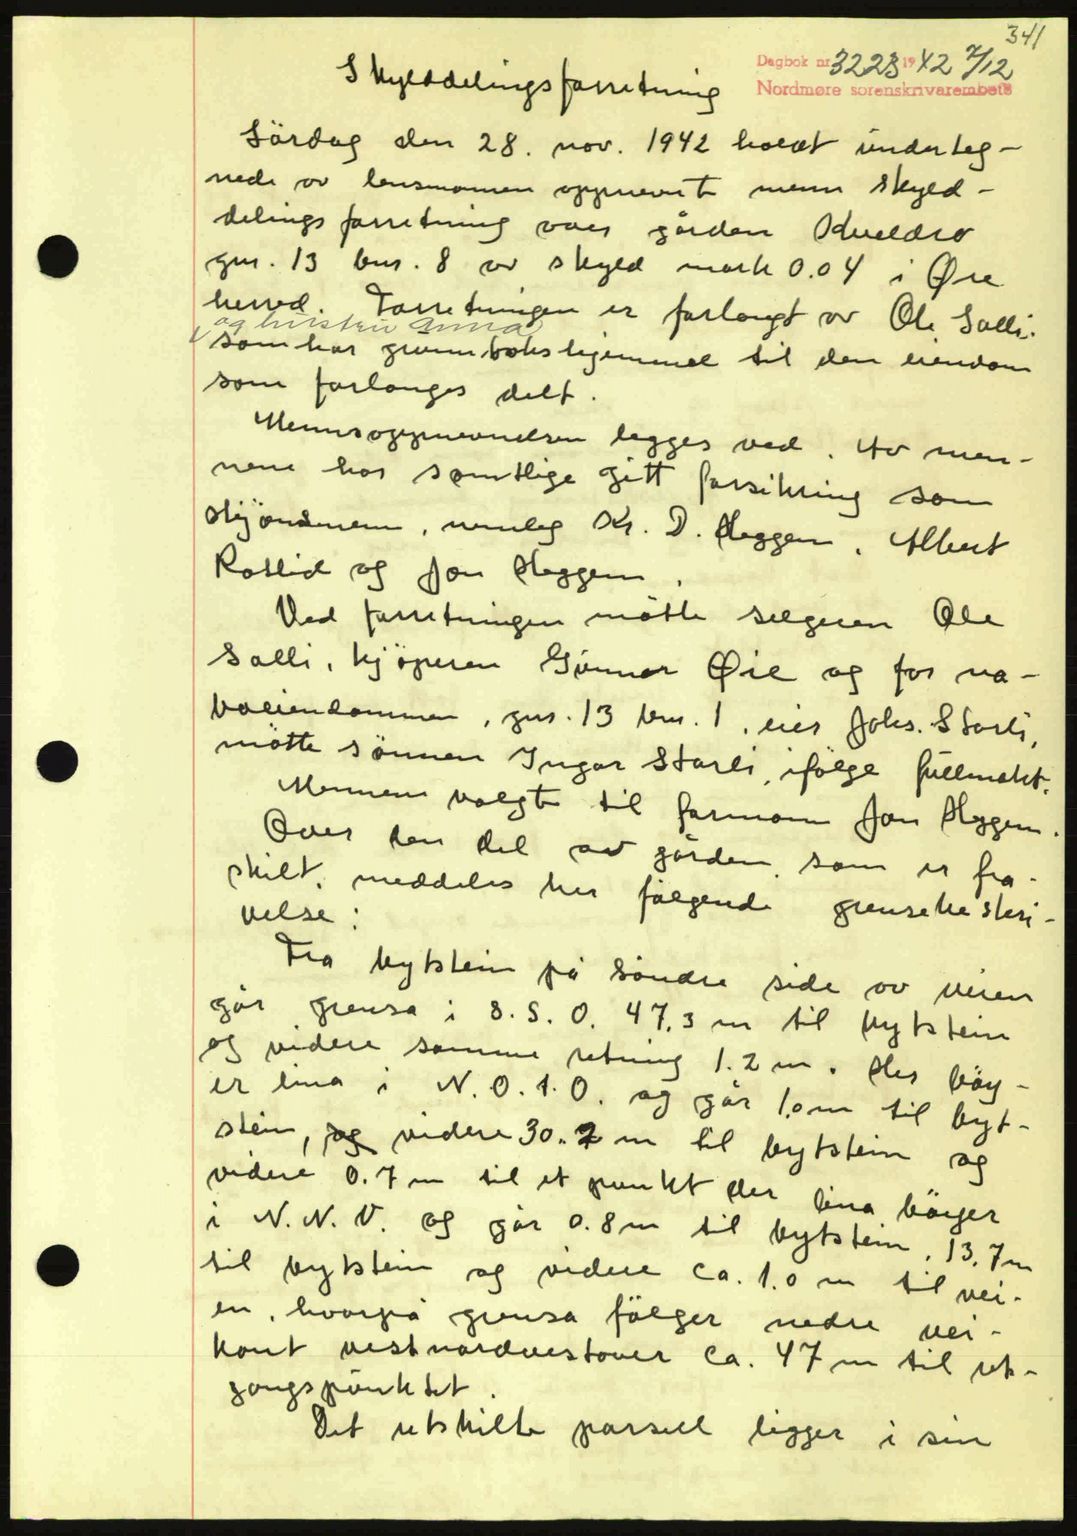 341
Dagbok nr. 3223 1942 7/12
Nordmøre sorenskriverembete
Skylddelingsforretning
Lördag den 28. nov. 1942 holdt underteg-
nede av lensmannen oppnevnt menn skyld-
delings forretning over gården Kveldro
gnr. 13 bnr. 8 av skyld mark 0.04 i Øre
herred. Forretningen er forlangt av Ole Solli
og hustru Anna
som har grunnbokshjemmel til den eiendom
som forlanges delt.
Mennsoppnevnelsen legges ved. Av men-
nene har samtlige gitt forsikring som
skjönnsmenn, nemleg Kr. D. Heggem, Albert
Roslid og Jon Heggem.
Ved forretningen mötte selgeren Ole
Solli, kjöperen Gunnar Øie og for na-
boeiendommen, gnr. 13 bnr. 1, eier Johs. Storli,
mötte sönnen Ingar Storli, ifölge fullmakt.
Mennene valgte til formann Jon Heggem.
Over den del av gården som er fra-
skilt, meddeles her fölgende grensebeskri-
velse:
Fra bytstein på söndre side av veien
går grensa i S. S. O. 47,3 m til bytstein
og videre samme retning 1.2 m. Her böy-
er lina i N. O. t. O. og går 1.0 m til byt-
stein, og videre 30.2 m til bytstein og
videre 0.7 m til et punkt der lina böyer
i N. N. V. og går 0.8 m til bytstein, 13,7 m
til bytstein og videre ca. 1.0 m til vei-
en, hvorpå grensa fölger nedre vei-
kant vestnordvestover ca. 47 m til ut-
gangspunktet.
Det utskilte parsell ligger i sin